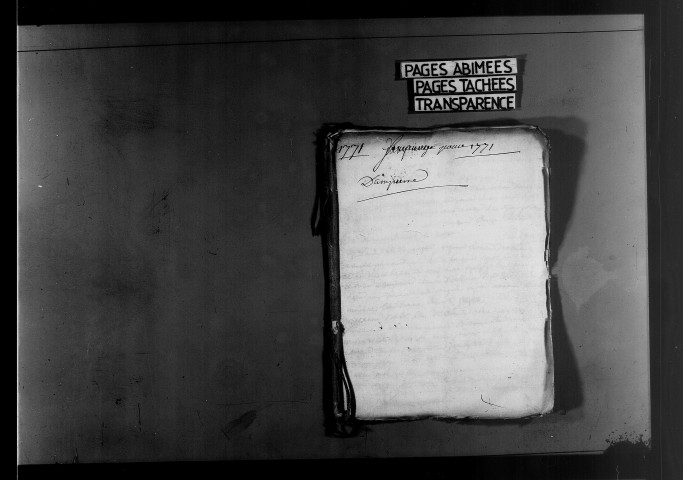 PAGES ABIMEES
PAGES TACHEES
TRANSPARENCE
1771 pour 1771
Dampierre